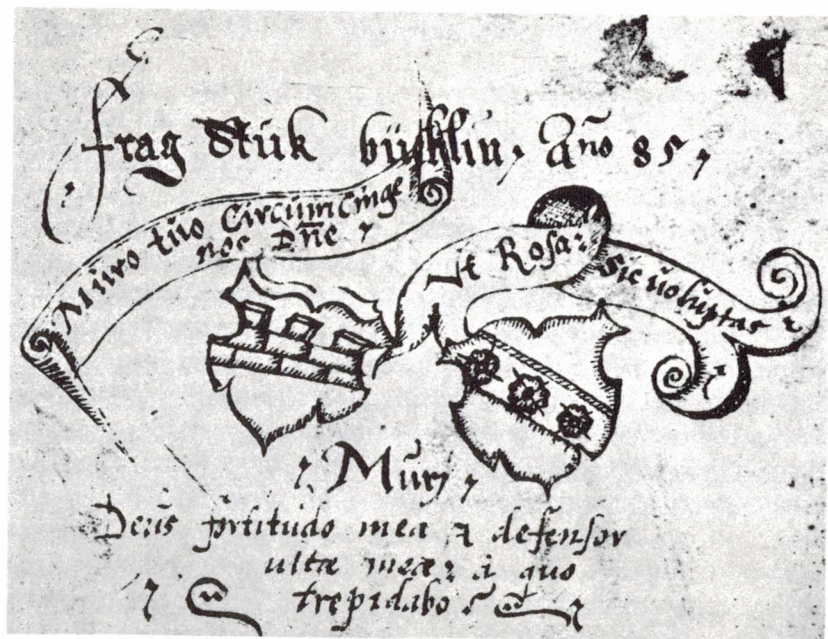 frag Stuk büchlin, Año 85,
Muro tüo Circümcinge
nos Dñe,
Vt Rosa:
Sic uolüptas
Murj
Deüs fortitudo mea & defensor
uitæ meæ: a quo
trepidabo?